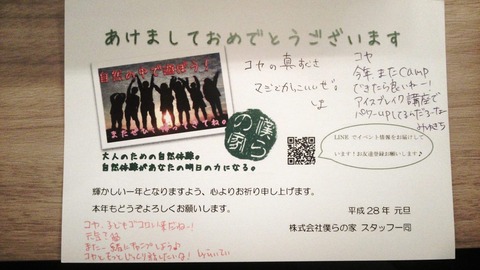 あけましておめでとうございます
自然の中で遊ぼう！
またぜひ帰ってきてね。
僕らの家
大人のための自然体験。
自然体験があなたの明日の力になる。
コヤの真すぐさ
マジどかっこいいぜ。
コヤ
今年またcamp
できたら良いねー！
アイスブレイク講座で
パワーupしてるんだろーなー
みゆきち
LINEでイベント情報をお届けして
います！お友達登録お願いします♪
輝かしい一年となりますよう、心よりお祈り申し上げます。
本年もどうぞよろしくお願いします。
平成28年 元旦
株式会社僕らの家 スタッフ一同
コヤ、
また一緒にキャンプしよう♪
コヤともっとじっくり話したいな！